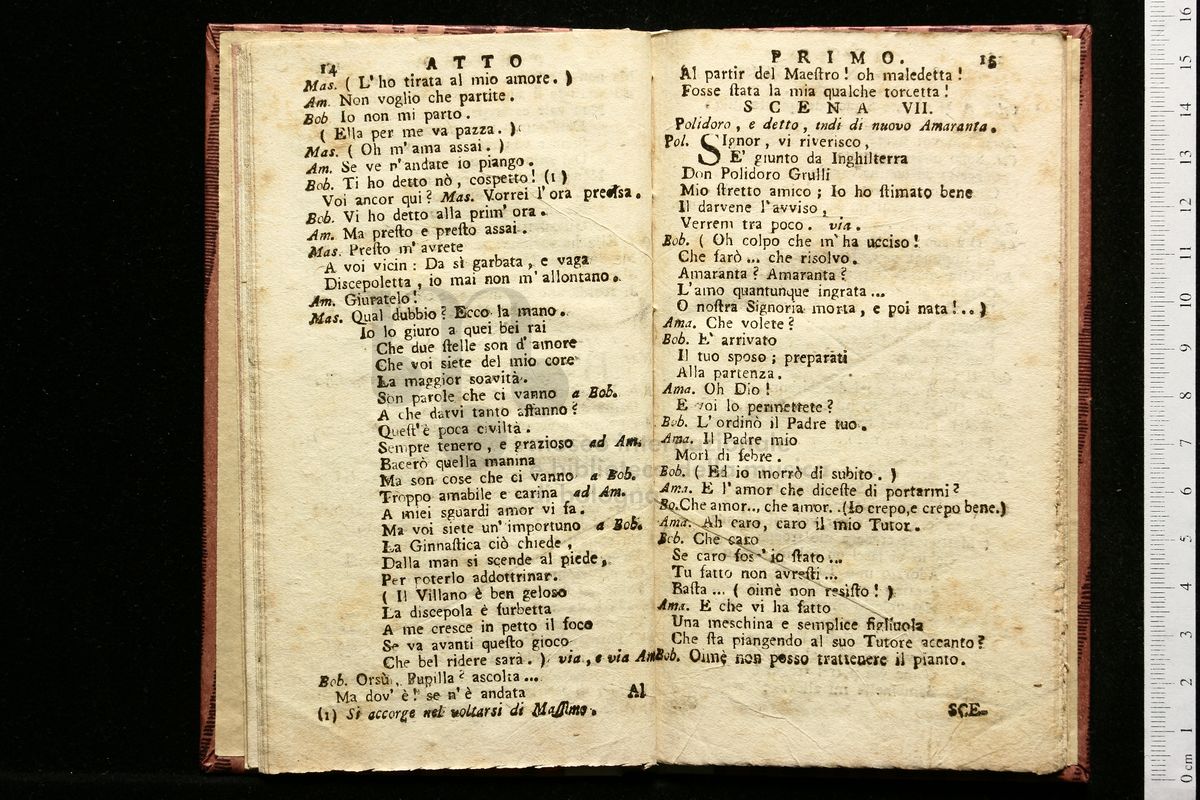 14 ATTO
Mas. ( L'ho tirata al mio amore. )
Am. Non voglio che partite.
Bob Io non mi parto.
( Ella per me va pazza. )
Mas. ( Oh m'ama assai. )
Am. Se ve n'andate io piango.
Bob. Ti ho detto nò, cospetto! (1)
Voi ancor qui? Mas. Vorrei l'ora precisa.
Bob. Vi ho detto alla prim' ora.
Am. Ma preſto e preſto assai.
Mas. Preſto m'avrete
A voi vicin: Da sì garbata, e vaga
Discepoletta, io mai non m'allontano.
Am. Giuratelo!
Mas. Qual dubbio? Ecco la mano.
Io lo giuro a quei bei rai
Che due ſtelle son d'amore
Che voi siete del mio core
La maggior soavità.
Son parole che ci vanno a Bob.
A che darvi tanto affanno?
Queſt'è poca civiltà.
Sempre tenero, e grazioso ad Am.
Bacerò quella manina
Ma son cose che ci vanno a Bob.
Troppo amabile e carina ad Am.
A miei sguardi amor vi fa.
Ma voi siete un'importuno a Bob.
La Ginnaſtica ciò chiede,
Dalla man si scende al piede,
Per poterlo addottrinar.
( Il Villano è ben geloso
La discepola è furbetta
A me cresce in petto il foco
Se va avanti queſto gioco
Che bel ridere sarà. ) via, e via Am.
Bob. Orsù, Pupilla? ascolta...
Ma dov'è! se n'è andata
Al
(1) Si accorge nel voltarsi di Maſſimo.
PRIMO. 15
Al partir del Maeſtro! oh maledetta!
Fosse ſtata la mia qualche torcetta!
SCENA VII.
Polidoro, e detto, indi di nuovo Amaranta.
Pol. SIgnor, vi riverisco,
E' giunto da Inghilterra
Don Polidoro Grulli
Mio ſtretto amico; Io ho ſtimato bene
Il darvene l'avviso,
Verrem tra poco. via.
Bob. ( Oh colpo che m'ha ucciso!
Che farò... che risolvo.
Amaranta? Amaranta?
L'amo quantunque ingrata...
O noſtra Signoria morta, e poi nata!.. )
Ama. Che volete?
Bob. E' arrivato
Il tuo sposo; preparati
Alla partenza.
Ama. Oh Dio!
E voi lo permettete?
Bob. L'ordinò il Padre tuo.
Ama. Il Padre mio
Morì di febre.
Bob. ( Ed io morrò di subito. )
Ama. E l'amor che diceſte di portarmi?
Bo. Che amor.., che amor. .(Io crepo,e crepo bene.)
Ama. Ah caro, caro il mio Tutor.
Bob. Che caro
Se caro foss'io ſtato...
Tu fatto non avreſti...
Baſta... ( oimè non resiſto! )
Ama. E che vi ha fatto
Una meschina e semplice figliuola
Che ſta piangendo al suo Tutore accanto?
Bob. Oimè non posso trattenere il pianto.
SCE-